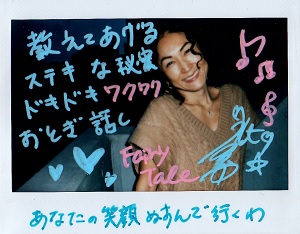 教えてあげる
ステキな秘密
ドキドキワクワク
おとぎ話し
Fairy
Tale
あなたの笑顔ぬすんで行くわ